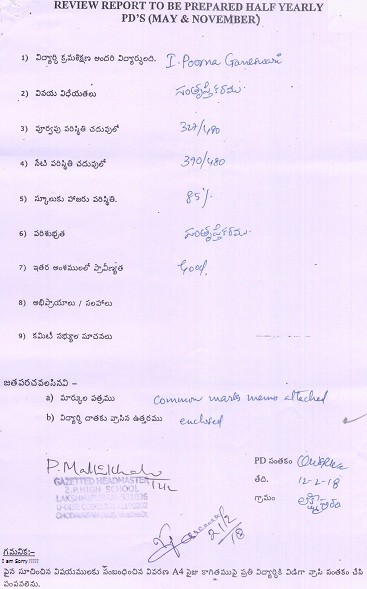 REVIEW REPORT TO BE PREPARED HALF YEARLY
PD'S (MAY & NOVEMBER)
1) విద్యార్థి క్రమశిక్షణ అందరి విద్యార్థులది. I. Poorna Ganeswari
2) వినయ విధేయతలు సంతృప్తికరము
3) పూర్వపు పరిస్థితి చదువులో 327/480
4) నేటి పరిస్థితి చదువులో 390/480
5) స్కూలుకు హాజరు పరిస్థితి. 85%
6) పరిశుభ్రత సంతృప్తికరము
7) ఇతర అంశములలో ప్రావీణ్యత Good
8) అభిప్రాయాలు / సలహాలు
9) కమిటీ సభ్యుల సూచనలు
జతపరచవలసినవి –
a) మార్కుల పత్రము common marks memo attached
b) విద్యార్థి దాతకు వ్రాసిన ఉత్తరము enclosed
PD సంతకం
GAZETTED HEADMASTER
తేది. 12-2-18
Z.P.HIGH SCHOOL
గ్రామం
21/2/18
గమనిక:–
I am Sorry !!!!!
పైన సూచించిన విషయములకు సంబంధించిన వివరణ A4 సైజు కాగితముపై ప్రతి విద్యార్థికి విడిగా వ్రాసి సంతకం చేసి
పంపవలెను.